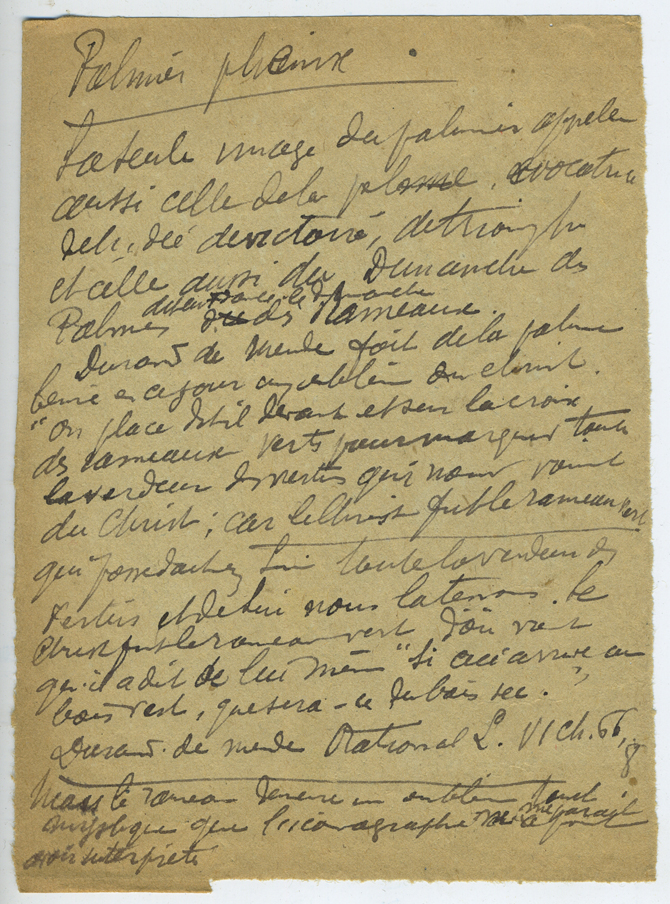 Palmier phénix
La seule image du palmier appelle
aussi celle de la palme, évocatrice
de l'idée de victoire, de triomphe
et celle aussi du Dimanche des
Palmes des Rameaux.
Durand de Mende fait de la palme
bénie en ce jour un emblème du Christ.
"On place dit il devant et sur la croix
des rameaux verts pour marquer toute
la verdeur des vertus qui nous vient
du Christ; car le Christ fut le rameau vert
qui posséda en lui toute la verdeur des
vertus et de lui nous la tenons. Le
Christ fut le rameau vert d'où vient
qu'il a dit de lui même "Si ceci arrive au
bois vert, que sera-ce du bois sec."
Durand de Mende Rational L. VI ch. 66, 8
Mais le rameau demeure un emblème
mystique que l'iconographie ne me paraît
avoir interprété